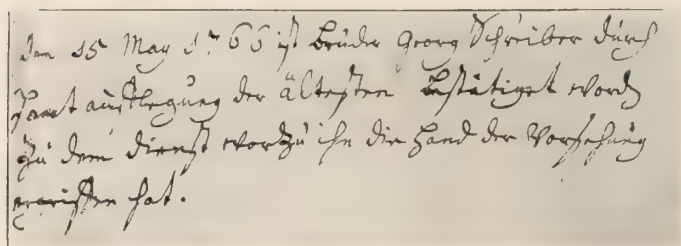 Den 15 May 1766 ist bruder Georg Schreiber durch
Hant aufflegung der ältesten bestätiget word
Zu dem dienst worzu ihn die Hand der Vorsehung
ergriffen hat.